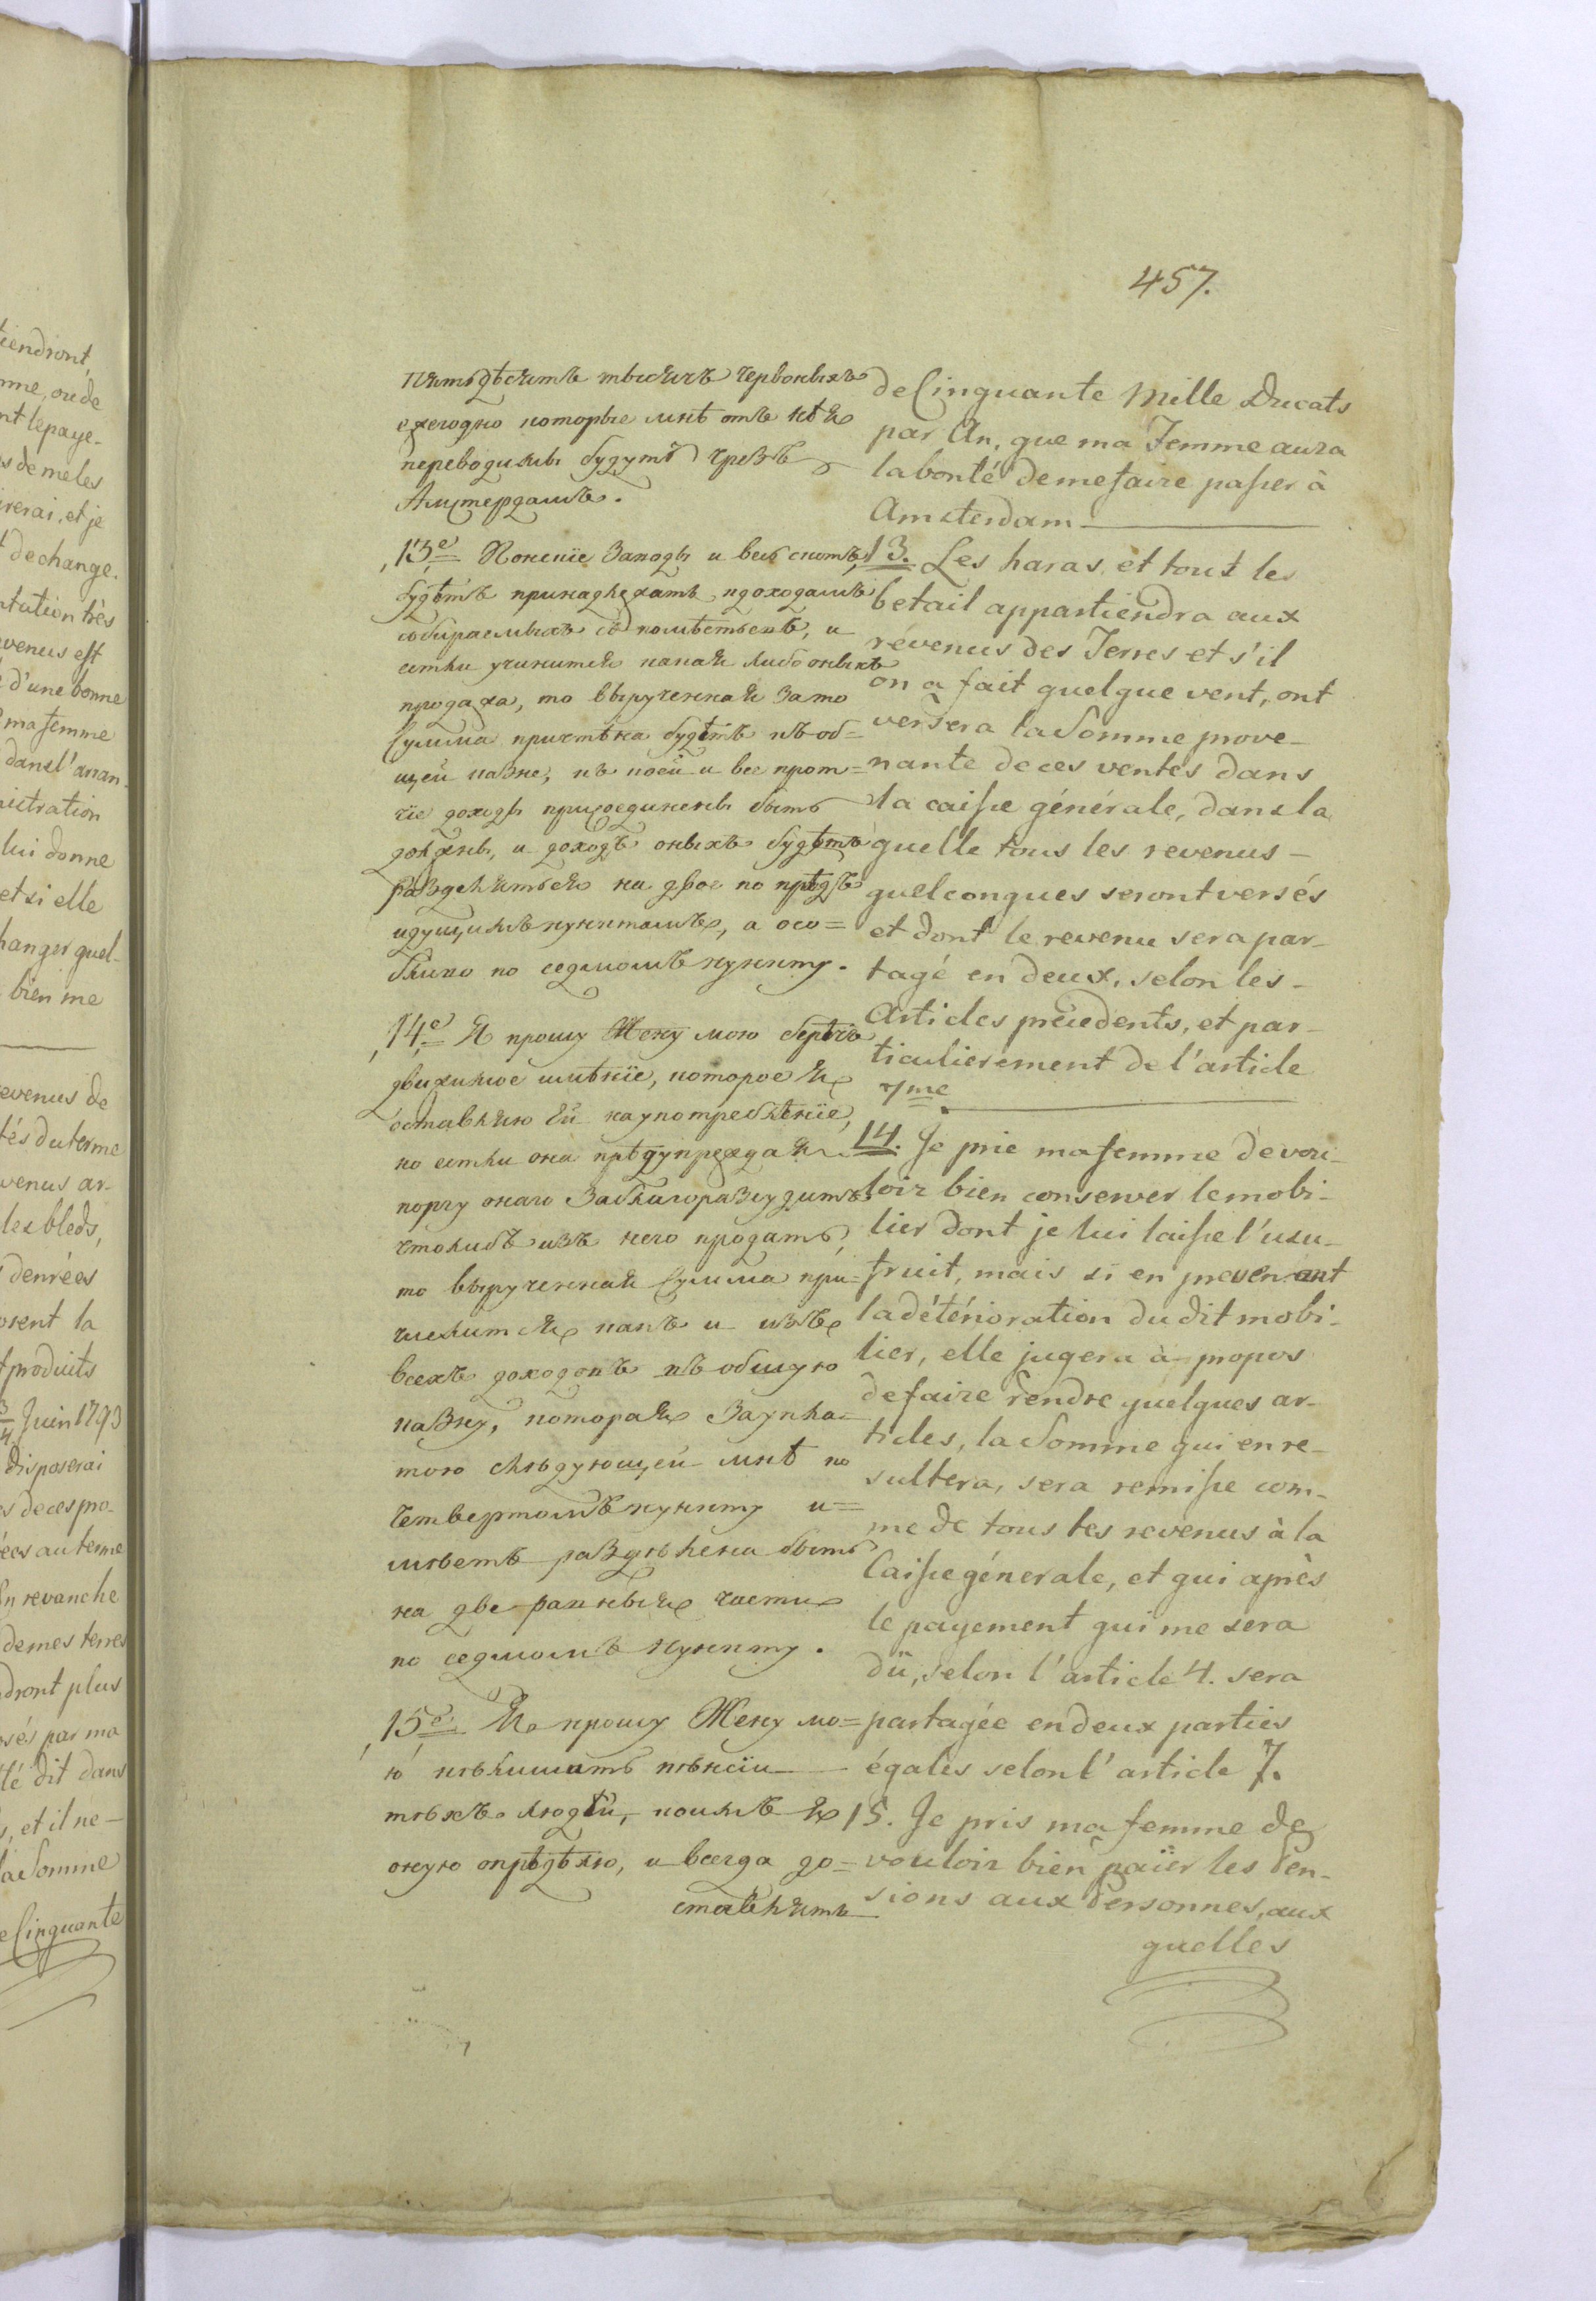 457.
пятьдѣсятъ тысячъ червоныхъ
ежегодно которые мнѣ отъ нѣя
переводимы будутъ чрезъ
Амстердамъ.
13е Конскіе Заводы и весь скотъ,
будѣтъ принадлежать кдоходамъ
собираемыхъ съ помѣстьевъ, и
естли учинится какая либо оныхъ
продажа, то вырученная за то
Сумма причтѣна будѣтъ къ об=
щей казне, къ коей и все прот=
чіе доходы присоединены быть
должны, и доходъ оныхъ будѣтъ
раздѣлиться на двое по прѣдъ
идущимъ пунктамъ, а осо=
бливо по седмомъ пункту.
14е Я прошу Жену мою берѣчь
движимое имѣніе, которое я
оставляю Ей на употребленіе,
но естли она прѣдупреждая
порчу онаго Заблагоразсудитъ
чтолибъ изъ него продать,
то вырученная Сумма при=
числится какъ и изъ
всехъ доходовъ въ общую
казну, которая За упла=
тою слѣдующей мнѣ по
четвертомъ пункту и=
мѣетъ раздѣлена быть
на две равныя части
по седмомъ пункту.
15е Я прошу Жену мо=
ю нѣлишать пѣнсіи
тѣхъ людѣй, коимъ я
оную опрѣдѣлю, и всегда до=
ставлять
de Cinquante Mille Ducats
par An, que ma Femme aura
la bonté de me faire passer à
Amsterdam
13. Les haras et tout les
betail appartiendra aux
révenus des Terres et s'il
on a fait quelque vent, ont
versera la Somme prove-
nante de ces ventes dans
la caisse générale, dans la
quelle tous les revenus -
quelconques seront versés
et dont le revenu sera par-
tagé en deux, selon les -
Articles précedents, et par-
ticulierement de l'article
7me
14. Je prie ma femme de vou-
loir bien conserver le mobi-
lier dont je lui laisse l'usu-
fruit, mais si en prevenant
la détérioration du dit mobi-
lier, elle jugera à propos
de faire Vendre quelques ar-
ticles, la Somme qui en re-
sultera, sera remise com-
me de tous les revenus à la
Caisse génerale, et qui après
le payement qui me sera
dü, selon l'article 4. sera
partagée en deux parties
égales selon l'article 7.
15. Je pris ma femme de
vouloir bien païer les Pen-
sions aux Personnes, aux
quelles